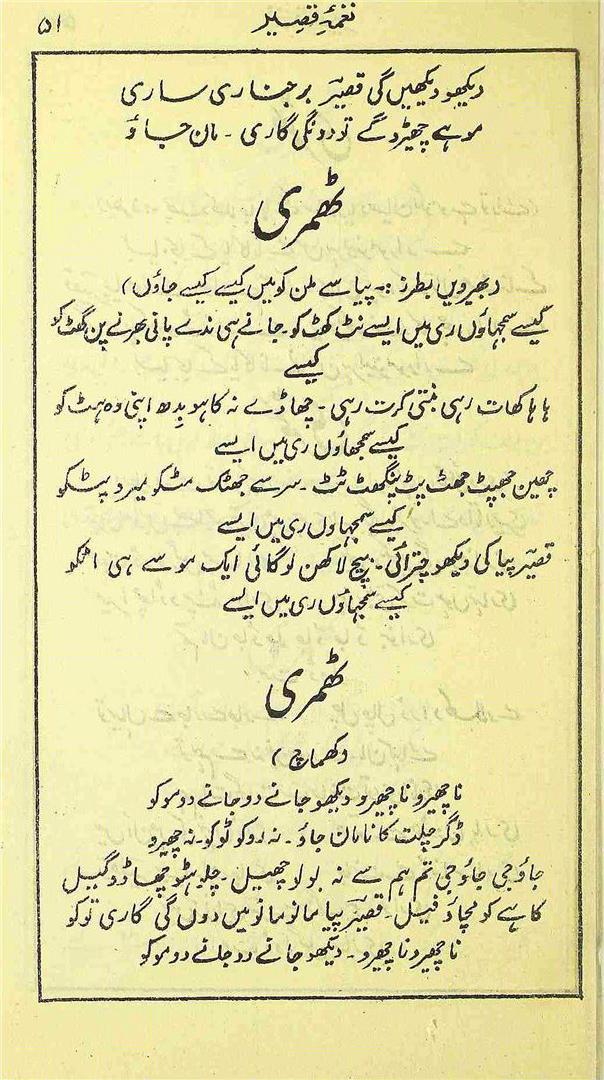 نغمۂ قصیر
۵۱
دیکھو دیکھیں گی قصیرؔ برجناری ساری
موہے چھیڑوگے تو دونگی گاری ۔ مان جاؤ
ٹھمری
(بھیرویں بطرز :۔ پیا سے ملن کو میں کیسے کیسے جاؤں)
کیسے سمجہاؤں ری میں ایسے نٹ کھٹ کو۔ جانے ہی ندے پانی بھرنے پن گھٹ کو
کیسے
ہا ہا کھات رہی بنتی کرت رہی ۔ چھاڈے نہ کاہو بدھ اپنی وہ ہٹ کو
کیسے سمجھاؤں ری میں ایسے
چھین جھپٹ جھٹ پٹ پنگھٹ تٹ ۔ سر سے جھٹک مٹکو
کیسے سمجہاوں ری میں ایسے
قصیرؔ پیا کی دیکھو چترائی ۔ بیچ لاکھن لوگائی ایک موسے ہی اٹکو
کیسے سمجہاؤں ری میں ایسے
ٹھمری
(کھماچ)
نا چھیرو نا چھیرو دیکھو جانے دو جانے دو موکو
ڈگر چلت کا نا مان جاؤ ۔ نہ روکو ٹوکو۔ نہ چھیرو
جاؤ جی جاؤ جی تم ہم سے نہ بولو چھیل ۔ چلو ہٹو چھاڈو گیل
کاہے کو مچاؤ فیل ۔ قصیرؔ پیا مانو مانو میں دوں گی گاری توکو
نا چھیرو نا چھیرو ۔ دیکھو جانے دو جانے دو موکو